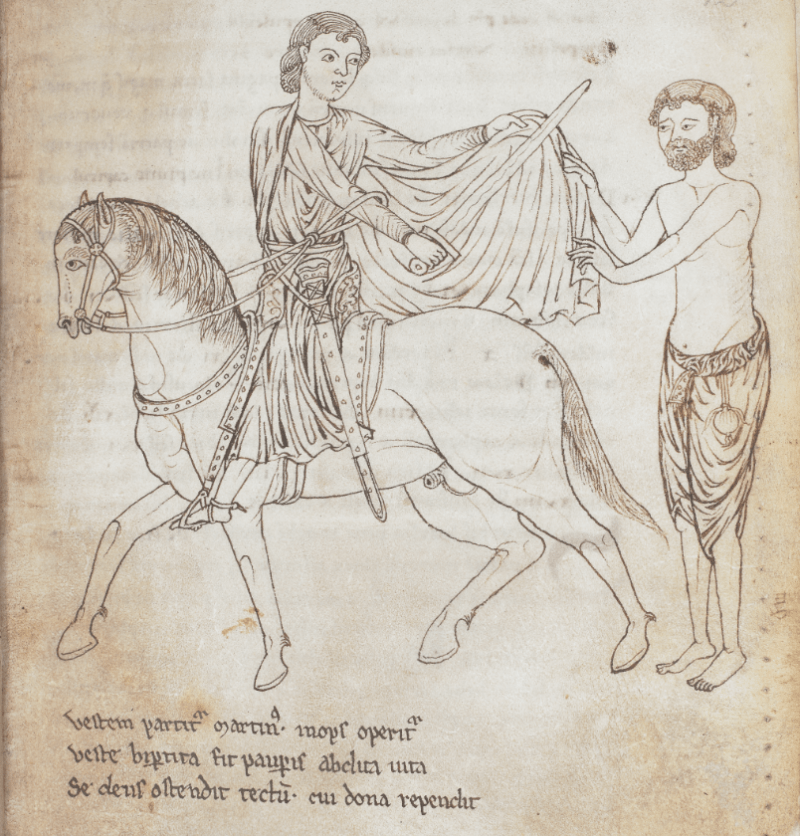 Vestem partit᷑ martinꝰ· inops operit᷑
Veste biꝑtita fit pauꝑis abdita uita
Se deus ostendit tectū· cui dona rependit